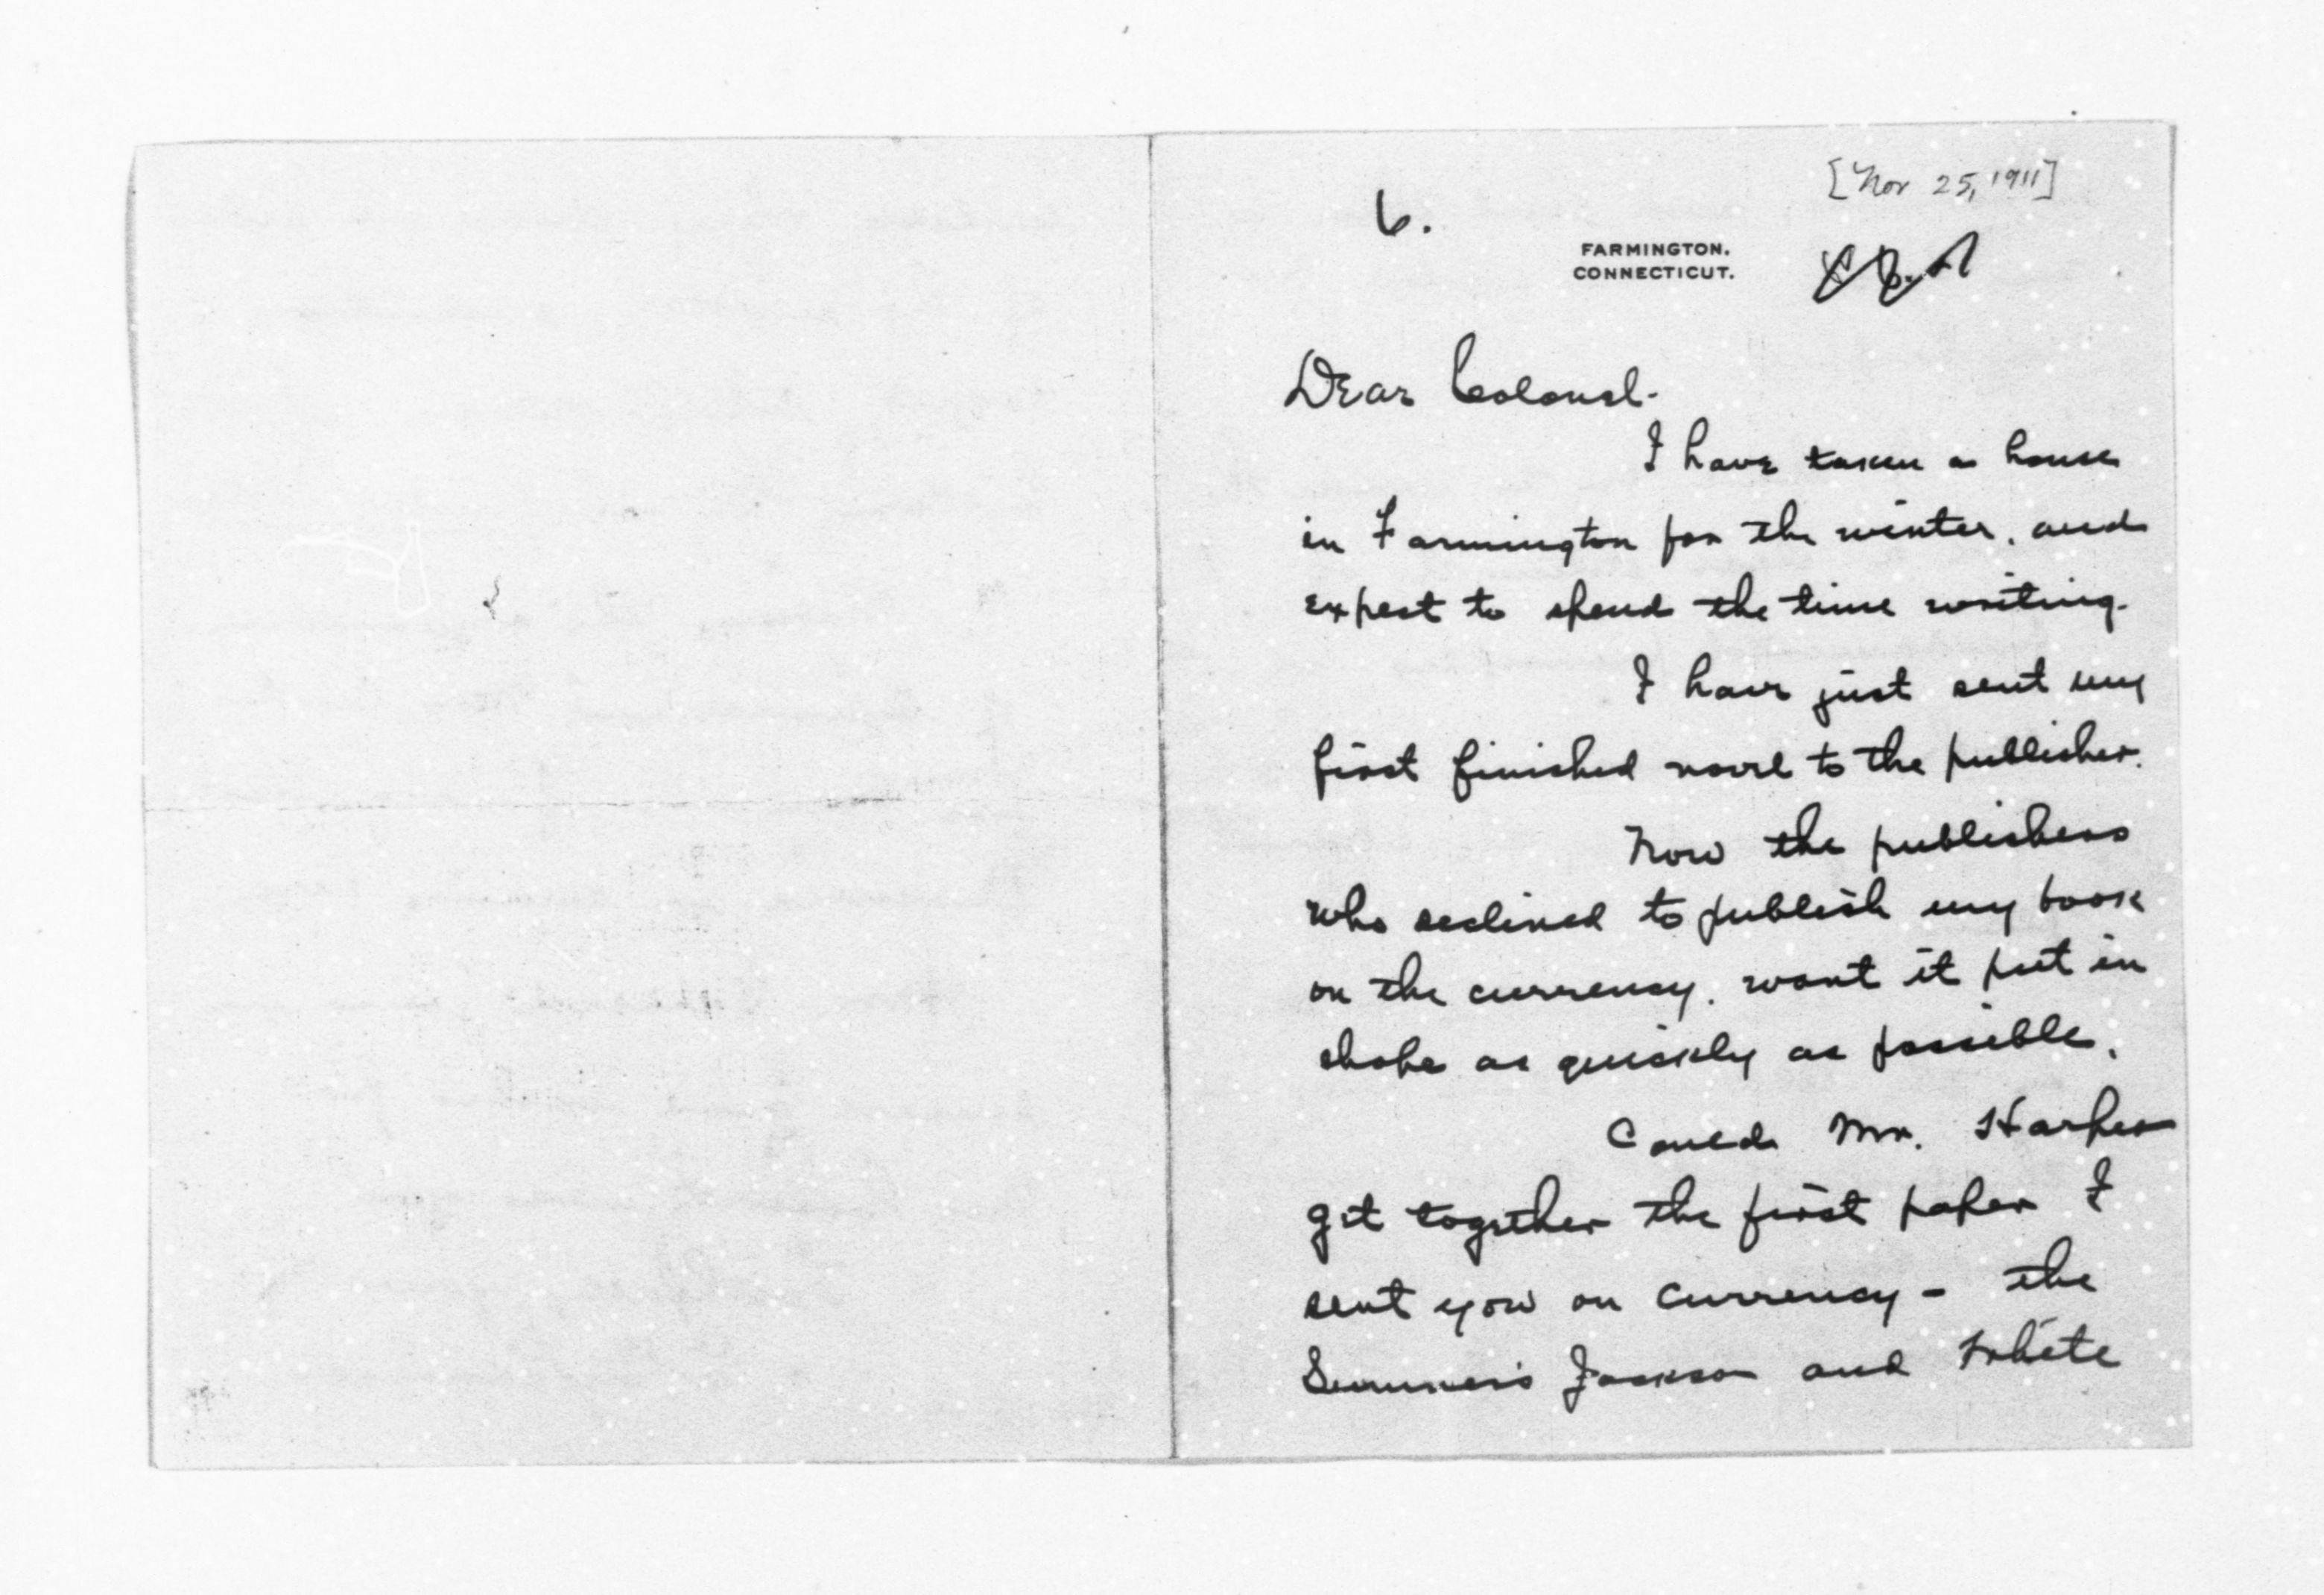 [Nov 25, 1911]
6.
FARMINGTON.
CONNECTICUT.
Dear Colonel-
I have taken a house
in Farmington for the winter, and
expect to spend the time writing.
I have just sent my
first finished novel to the publisher.
Now the publishers
who declined to publish my book
on the currency, want it put in
shape as quickly as possible.
Could Mr. Harper
get together the first paper I
sent you on currency - the
Sumner's Jackson and White